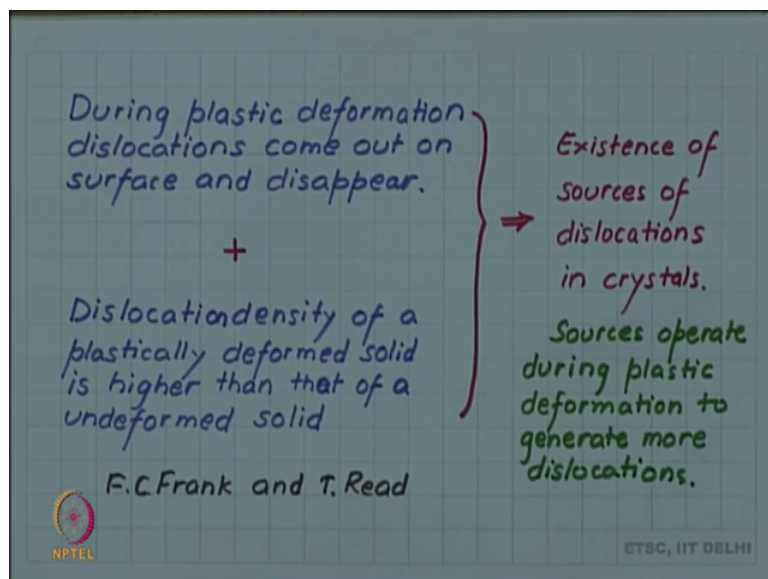 During plastic deformation
dislocations come out on
surface and disappear.
+
Dislocation density of a
plastically deformed solid
is higher than that of a
undeformed solid
F.C. Frank and T. Read
⇒
Existence of
sources of
dislocations
in crystals.
Sources operate
during plastic
deformation to
generate more
dislocations.
NPTEL
ETSC, IIT DELHI